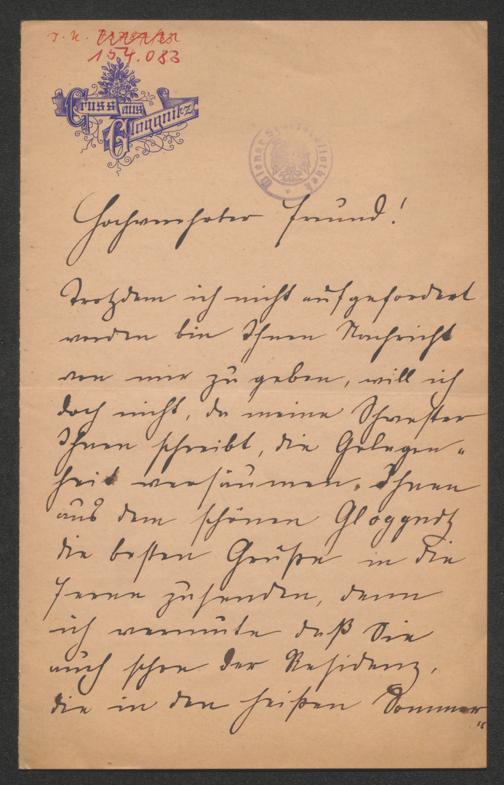 J. N.
154.083
Gruss aus
Gloggnitz
Wiener Stadtbibliothek
Hochverehrter Freund!
Trotzdem ich nicht aufgefordert
worden bin Ihnen Nachricht
von mir zu geben, will ich
doch nicht, da meine Schwester
Ihnen schreibt, die Gelegen-
heit versäumen, Ihnen
aus dem schönen Gloggnitz
die besten Grüße in die
Ferne zu senden, denn
ich vermute daß Sie
auch schon der Residenz,
die in den heißen Sommer-